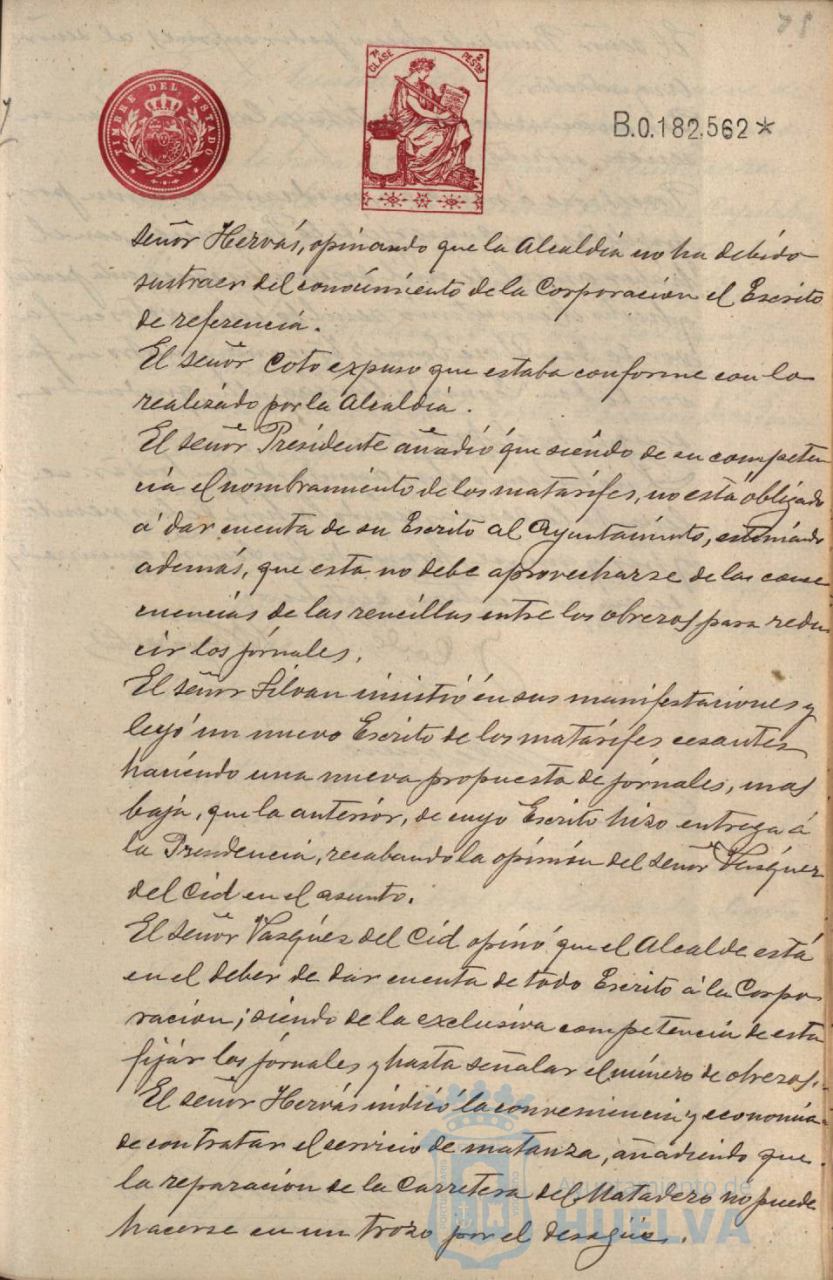 75
TIMBRE DEL ESTADO
7ª CLASE 2 PESTAS
B.0.182.562*
señor Hervás, opinando que la Alcaldia no ha debido
sustraer del conocimiento de la Corporacion el Escrito
de referencia.
El señor Coto expuso que estaba conforme con lo
realizado por la Alcaldia.
El señor Presidente añadió que siendo de su competen
cia el nombramiento de los matarifes, no está obligado
á dar cuenta de su Escrito al Ayuntamiento, estimando
además, que esta no debe aprovecharse de las conse
cuencias de las rencillas entre los obreros para redu
cir los jornales.
El señor Silvan insistió en sus manifestaciones y
leyó un nuevo Escrito de los matarifes cesantes
haciendo una nueva propuesta de jornales, mas
baja, que la anterior, de cuyo Escrito hizo entrega á
la Presidencia, recabando la opinión del señor Vasquez
del Cid en el asunto.
El señor Vasquez del Cid opinó que el Alcalde está
en el deber de dar cuenta de todo Escrito á la Corpo
racion; siendo de la exclusiva competencia de esta
fijar los jornales y hasta señalar el número de obreros.
El señor Hervás indicó la conveniencia y economia
de contratar el servicio de matanza, añadiendo que
la reparacion de la Carretera del Matadero no puede
hacerse en un trozo por el desagüe.
Ayuntamiento de
HUELVA